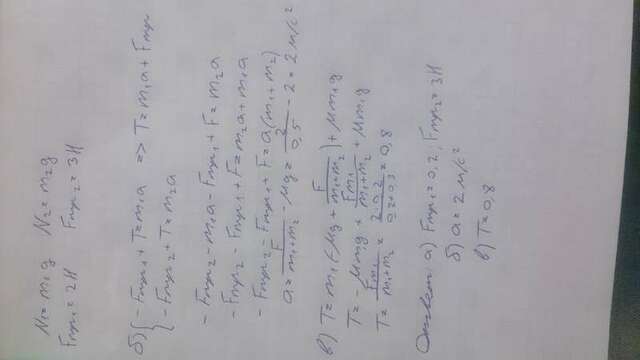 N₁=m₁g N₂=m₂g
Fтр₁=2Н Fтр₂=3Н
б) {-Fтр₁+T=m₁a => T=m₁a+Fтр₁
-Fтр₂+T=m₂a
-Fтр₂-m₁a-Fтр₁+F=m₂a
-Fтр₂-Fтр₁+F=m₂a+m₁a
-Fтр₂-Fтр₁+F=a(m₁+m₂)
a=F/(m₁+m₂)-μg=2/0,5-2=2м/с²
в) T=m₁(-μg+F/(m₁+m₂))+μm₁g
T=-μm₁g+Fm₁/(m₁+m₂)+μm₁g
T=Fm₁/(m₁+m₂)=2·0,2/(0,2+0,3)=0,8
Ответ: а) Fтр₁=0,2, Fтр₂=3Н
б) a=2м/с²
в) T=0,8